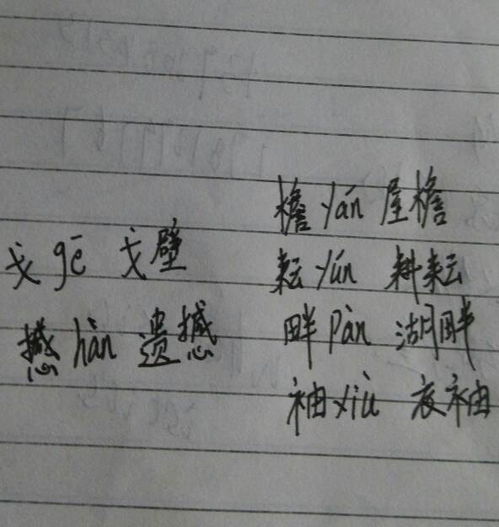 檐 yán 屋檐
戈 gē 戈壁
耘 yún 耕耘
憾 hàn 遗憾
畔 pàn 湖畔
袖 xiù 衣袖